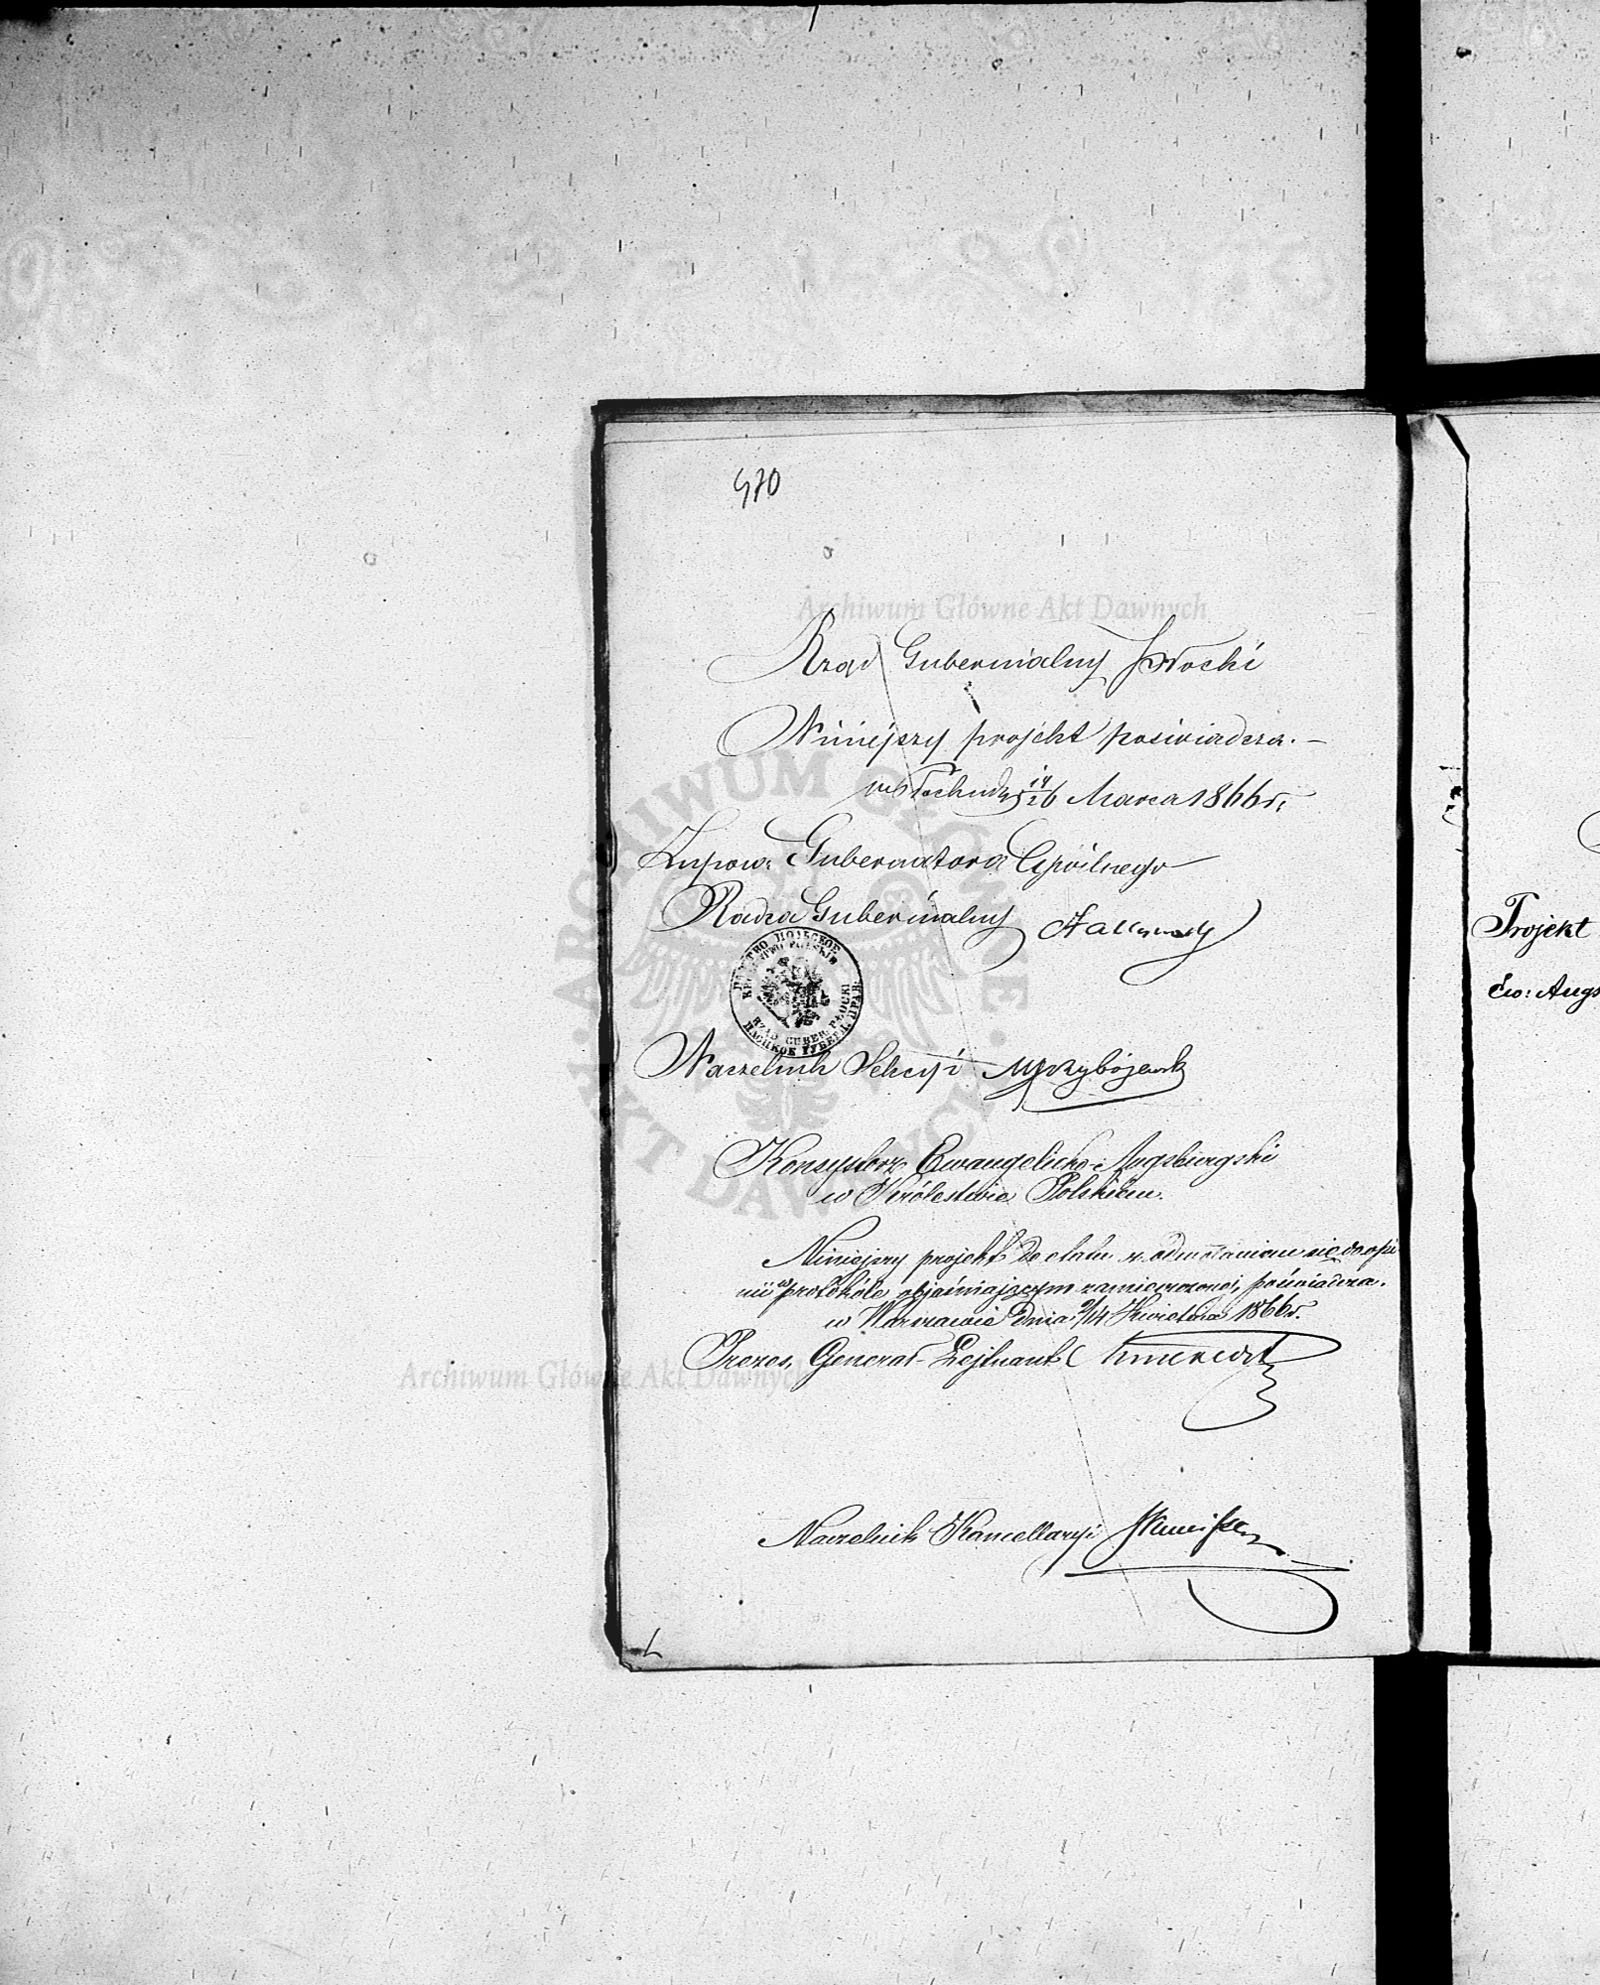 470
Archiwum Główne Akt Dawnych
Rząd Gubernialny Płocki
Niniejszy projekt poświadcza. —
w Płocku dnia 14/26 Marca 1866 r.
Z upow: Gubernatora Cywilnego
Radca Gubernialny
KRÓLESTWO POLSKIE
RZĄD GUBER. PŁOCKI
ARCHIWUM GŁÓWNE AKT DAWNYCH
Naczelnik Sekcyi
Konsystorz Ewangelicko-Augsburgski
w Królestwie Polskiem.
Niniejszy projekt do etatu z odwołaniem się do opi
nii w protokóle objaśniającym zamieszczonej, poświadcza.
w Warszawie dnia 2/14 Kwietnia 1866 r.
Prezes, Generał-Lejtnant
Archiwum Główne Akt Dawnych
Naczelnik Kancellaryi
Projekt
Ew: Augs